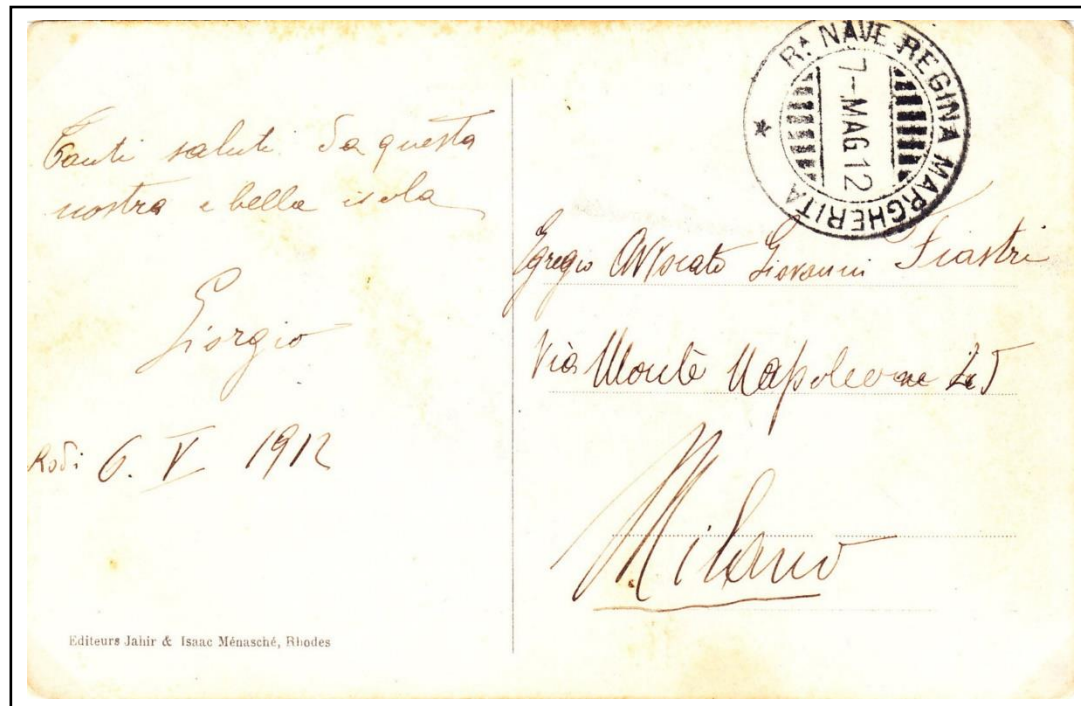 Tanti saluti da questa
nostra e bella isola
Giorgio
Rodi 6. V 1912
Editeurs Jahir & Isaac Ménasché, Rhodes
Rª NAVE REGINA MARGHERITA
7-MAG12
Egregio Avvocato Giovanni Fiastri
Via Monte Napoleone
Milano